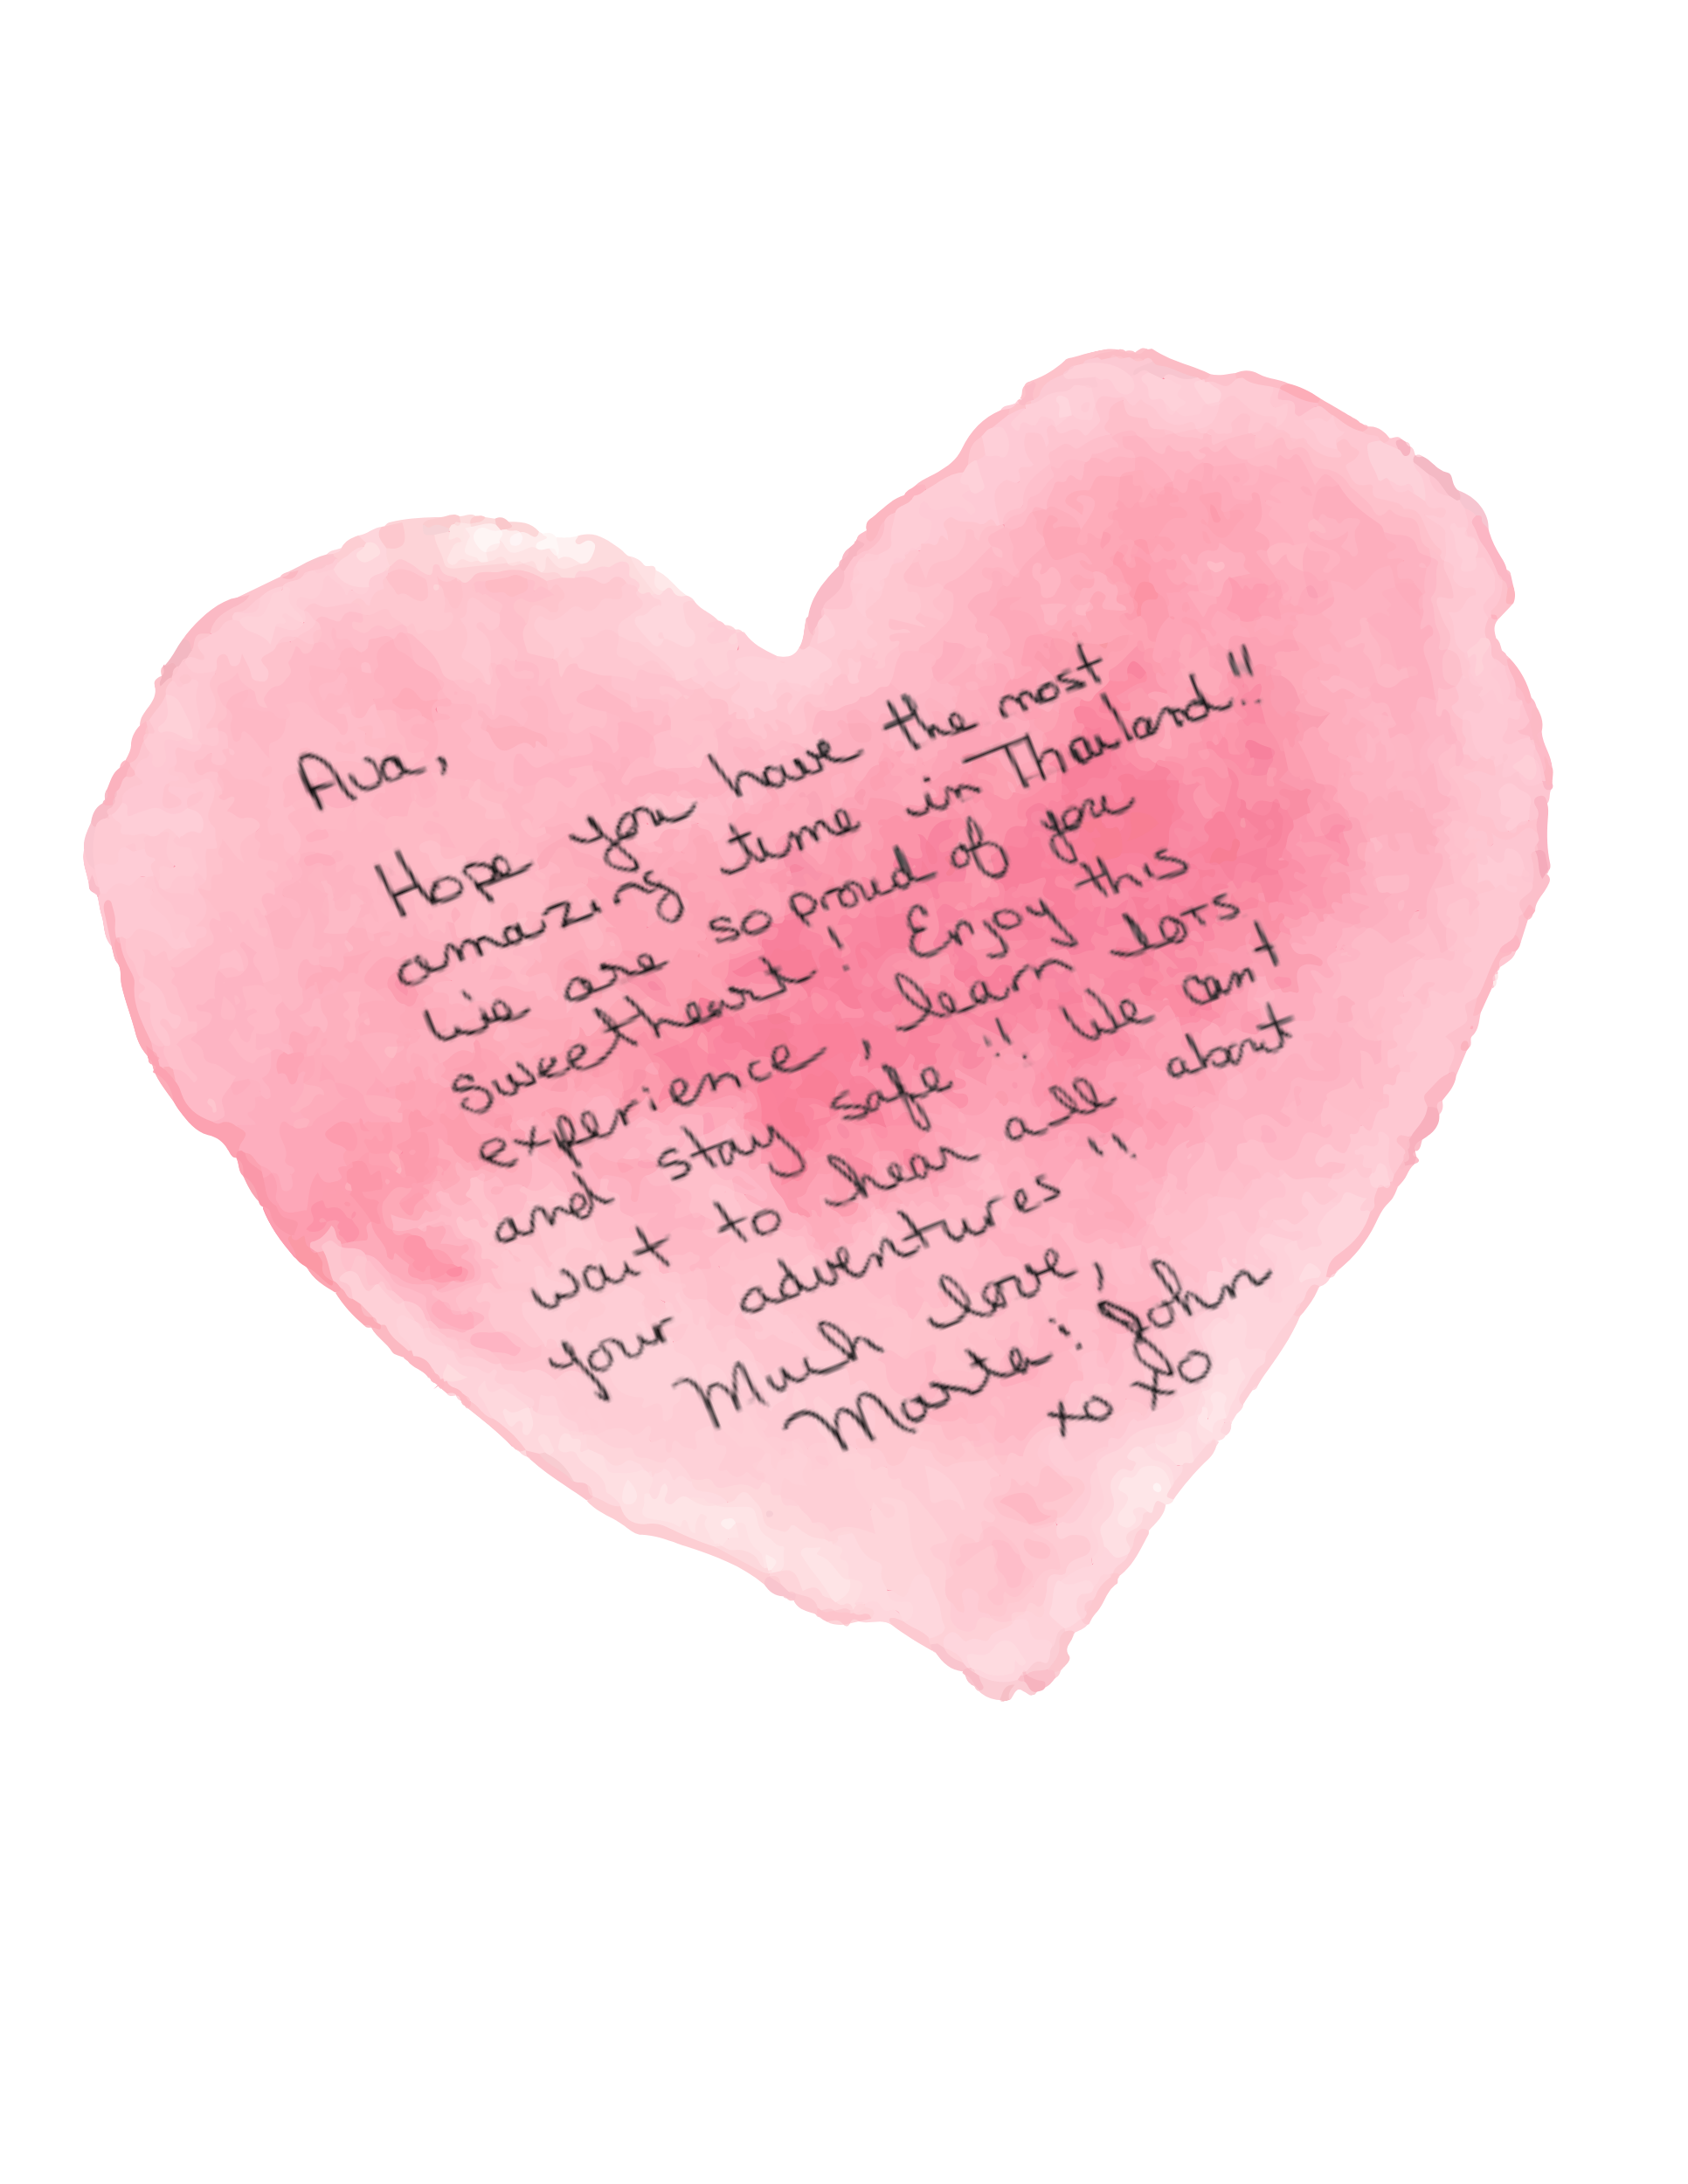 Ava,
Hope you have the most
amazing time in Thailand!!
We are so proud of you
sweetheart! Enjoy this
experience, learn lots
and stay safe!! We can't
wait to hear all about
your adventures!!
Much love,
Marta : John
xo xo